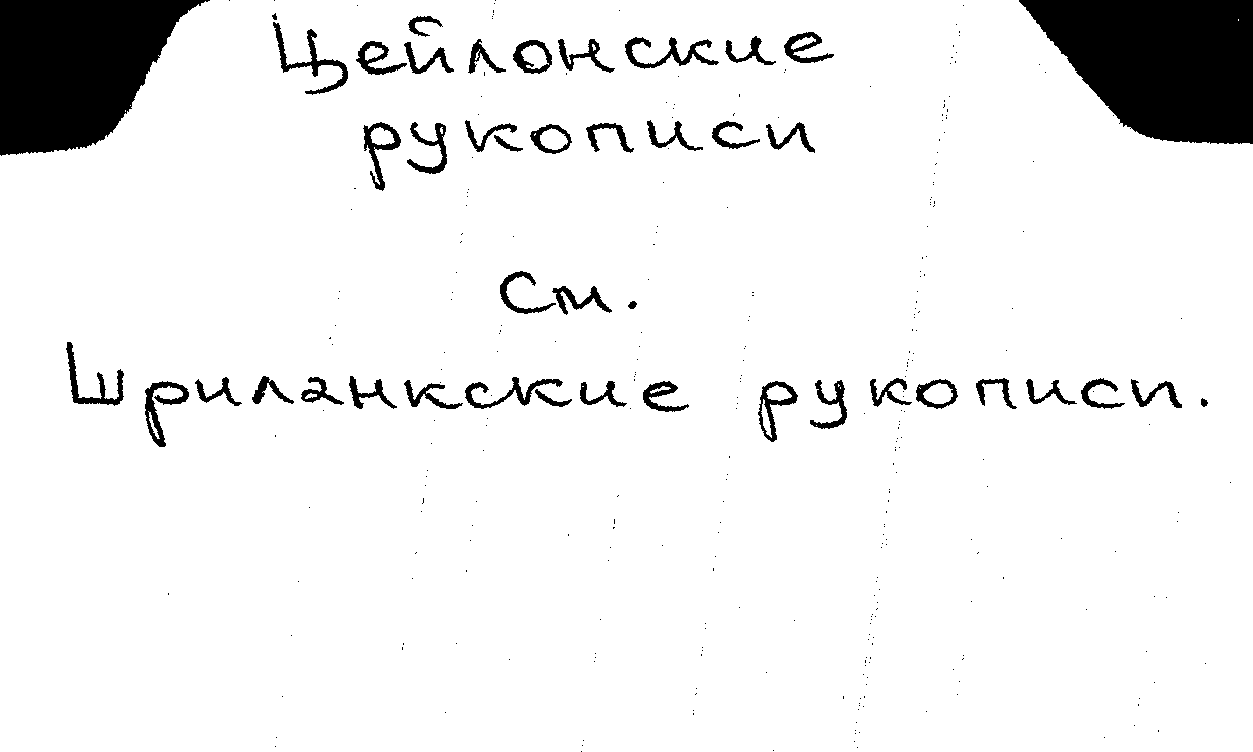 Цейлонские
рукописи
См.
Шриланкские рукописи.